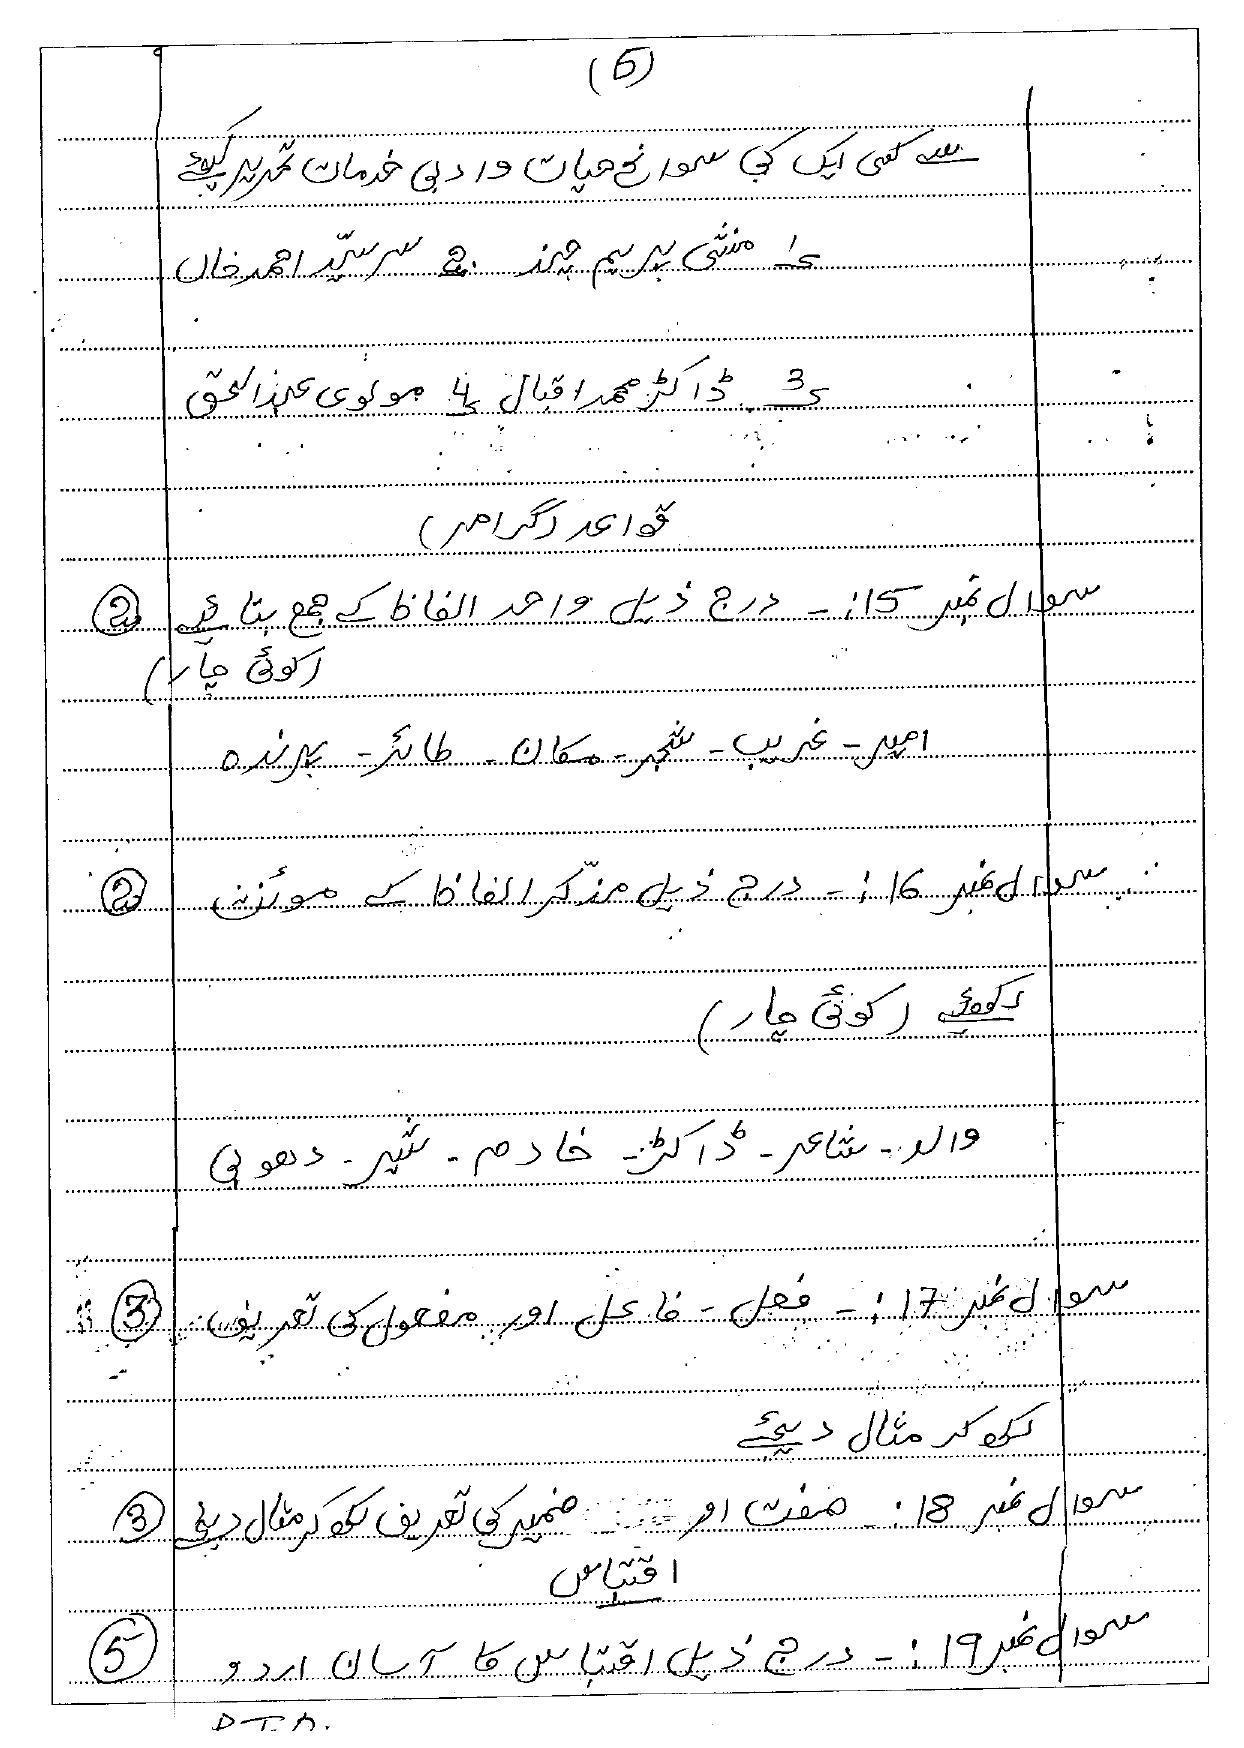 (6)
سے کسی ایک کی سوانح حیات و ادبی خدمات تحریر کیجئے
1۔ منشی پریم چند 2۔ سرسیّد احمد خاں
3۔ ڈاکٹر محمد اقبال 4۔ مولوی عبدالحق
قواعد (گرامر)
سوال نمبر 15:۔ درج ذیل واحد الفاظ کے جمع بنائیے (2)
(کوئی چار)
امیر۔ غریب۔ شجر۔ مکان۔ طائر۔ پرندہ
سوال نمبر 16:۔ درج ذیل مذکّر الفاظ کے موئنث (2)
لکھئے (کوئی چار)
والد۔ شاعر۔ ڈاکٹر۔ خادم۔ شیر۔ دھوبی
سوال نمبر 17:۔ فعل۔ فاعل اور مفعول کی تعریف (3)
لکھ کر مثال دیجئے
سوال نمبر 18:۔ صفت اور ضمیر کی تعریف لکھ کر مثال دیجئے (3)
اقتباس
سوال نمبر 19:۔ درج ذیل اقتباس کا آسان اردو (5)
P.T.O.